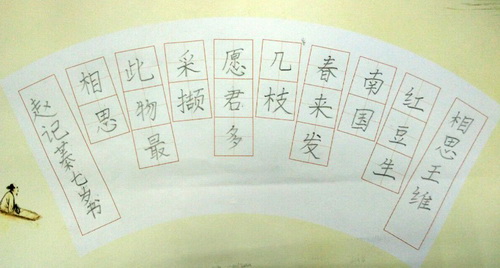 相思王维
红豆生
南国
春来发
几枝
愿君多
采撷
此物最
相思
赵记蓁七岁书